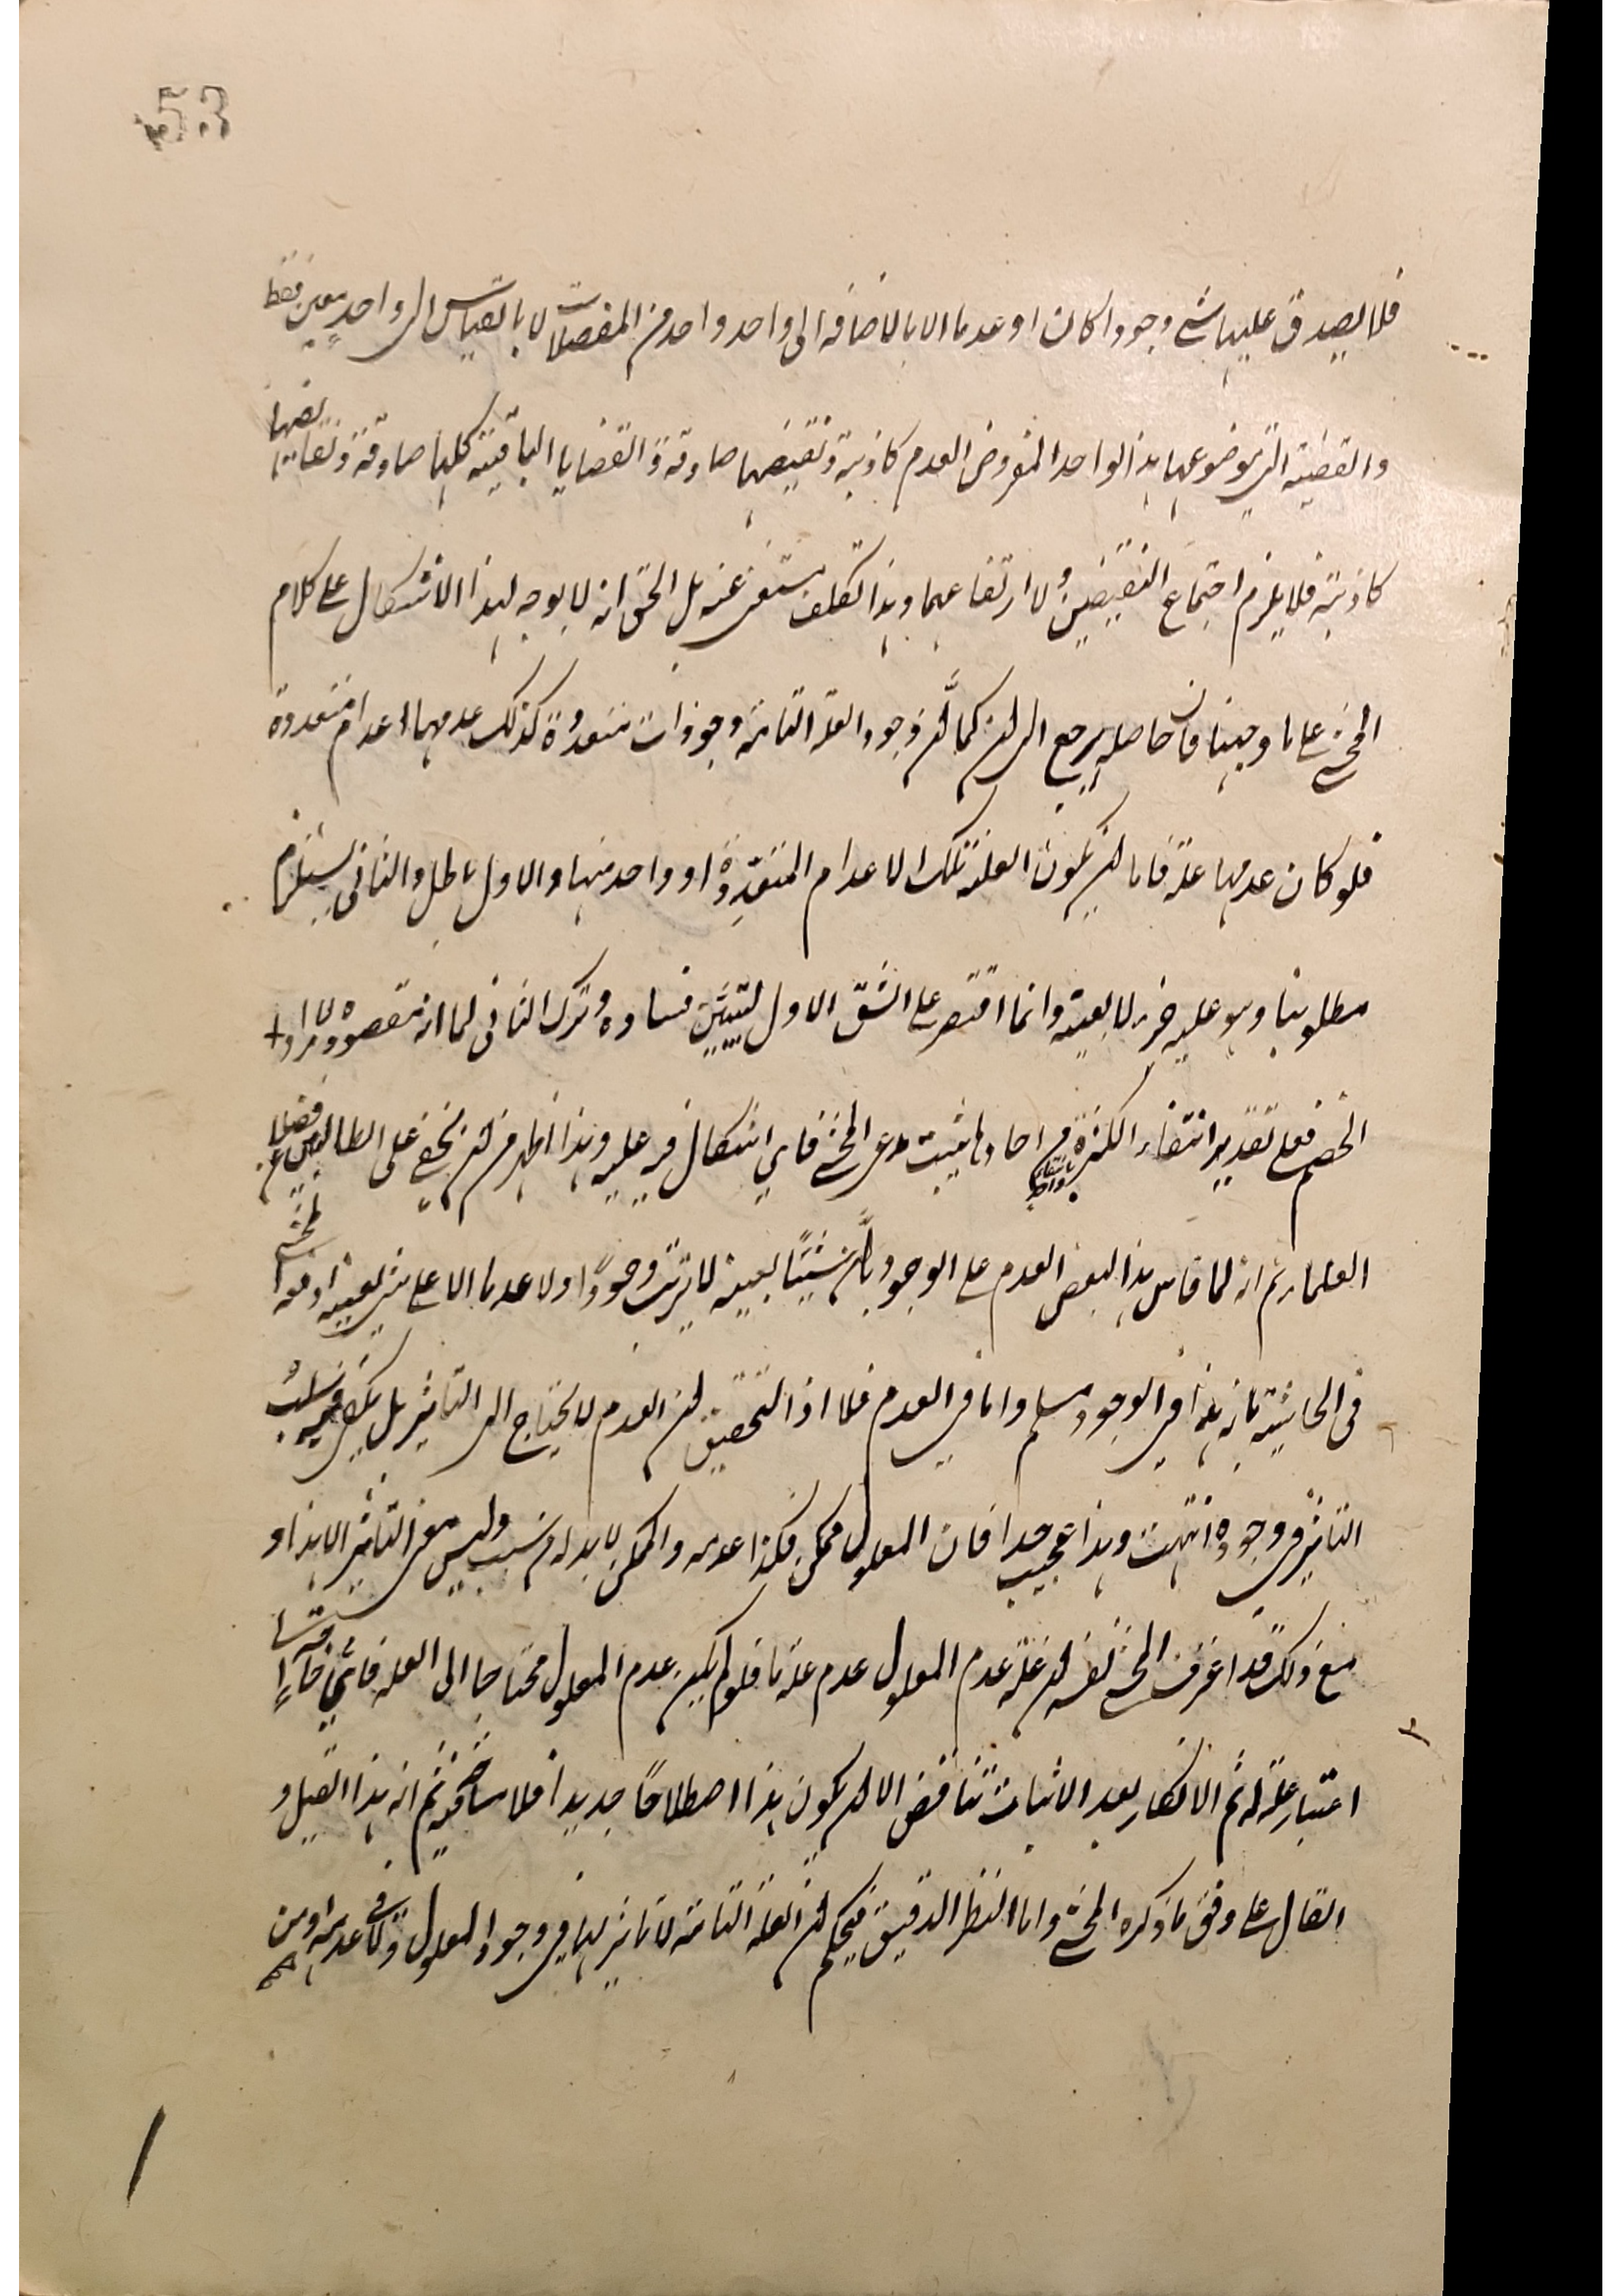 53
فلا يصدق عليها شي وجودا كان او عدما الا بالاضافة الى واحد واحد من المفصلات لا بالقياس الى واحد معين فقط
والقضية التي موضوعها هذا الواحد المفروض العدم كاذبة ونقيضها صادقة والقضايا الباقية كلها صادقة ونقايضها
كاذبة فلا يلزم اجتماع النقيضين ولا ارتفاعهما وهذا تكلف مستغنى عنه بل الحق انه لا يوجه لهذا الاشكال على كلام
المحشي على ما وجهنا فان حاصله يرجع الى ان كما ان وجود العلة التامة وجودات متعددة كذلك عدمها اعدام متعددة
فلو كان عدمها علة فاما ان يكون العلة تلك الاعدام المتعددة او واحد منها والاول باطل والثاني يستلزم
مطلوبنا وهو علية جزء لا بعينه وانما اقتصر على الشق الاول لتبيين فساده وترك الثاني لما انه مقصوده لا مراد
الخصم فعلى تقدير انتفاء الكثرة من احادها يثبت مدعى المحشي فاي اشكال فيه عليه وهذا اظهر من ان يخفى على الطالبين فضلا عن
العلماء ثم انه لما قاس هذا البعض العدم على الوجود بان شيئا بعينه لا يترتب وجودا ولا عدما الا على شي بعينه دفعه المحشي
في الحاشية بانه هذا في الوجود مسلم واما في العدم فلا اذ التحقيق ان العدم لا يحتاج الى التاثير بل يكفي فيه سلب
التاثير في وجوده انتهت وهذا عجيب جدا فان المعلول ممكن فكذا عدمه والممكن لا بد له من سبب وليس معنى التاثير الا هذا و
مع ذلك قد اعترف المحشي نفسه ان علة عدم المعلول عدم علة ما فلو لم يكن عدم المعلول محتاجا الى العلة فاي فاقة الى
اعتبار علة له ثم الانكار بعد الاثبات تناقض الا ان يكون هذا اصطلاحا جديدا فلا مشاحة فيه ثم انه هذا القيل و
القال على وفق ما ذكره المحشي واما النظر الدقيق فيحكم ان العلة التامة لا تاثير لها في وجود المعلول ولا في عدمه اذ من